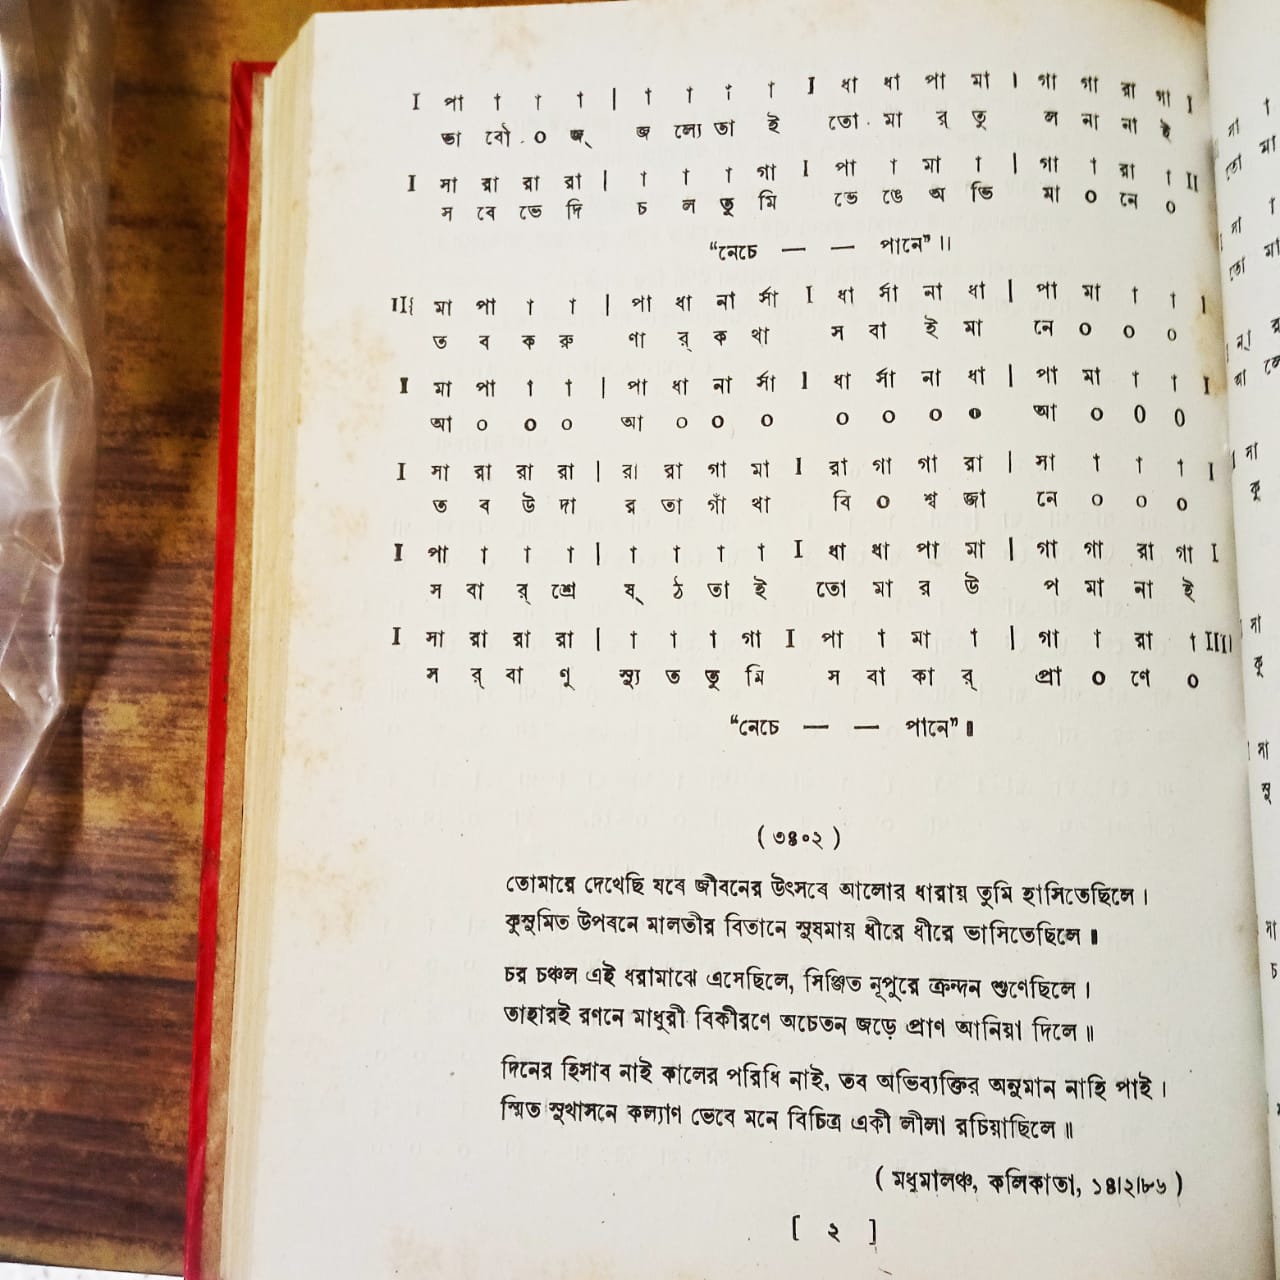 I পা † † † | † † † † I ধা ধা পা মা | গা গা রা গা I
ভা বো . ০ জ্ জ ন্যে তা ই তো . মা র্ তু ল না না ই
I মা রা রা রা | † † † গা I পা † মা † | গা † রা † II
স বে তে দি চ ল তু মি ভে ঙে অ ভি মা ০ নে ০
“নেচে — — পানে” ।।
II{ মা পা † † | পা ধা না র্সা I ধা র্সা না ধা | পা মা † † I
ত ব ক রু ণা র্ ক থা স বা ই মা নে ০ ০ ০
I মা পা † † | পা ধা না র্সা I ধা র্সা না ধা | পা মা † † I
আ ০ ০ ০ আ ০ ০ ০ ০ ০ ০ ০ আ ০ ০ ০
I সা রা রা রা | রা রা গা মা I রা গা গা রা | সা † † † I
ত ব উ দা র তা গাঁ থা বি ০ শ্ব জা নে ০ ০ ০
I পা † † † | † † † † I ধা ধা পা মা | গা গা রা গা I
স বা র্ শ্রে ষ্ ঠ তা ই তো মা র উ প মা না ই
I সা রা রা রা | † † † গা I পা † মা † | গা † রা † II}
স র্ বা নু স্যু ত তু মি স বা কা র্ প্রা ০ ণে ০
“নেচে — — পানে” ॥
( ৩৪০২ )
তোমারে দেখেছি যবে জীবনের উৎসবে আলোর ধারায় তুমি হাসিতেছিলে ।
কুসুমিত উপবনে মালতীর বিতানে সুষমায় ধীরে ধীরে ভাসিতেছিলে ॥
চর চঞ্চল এই ধরামাঝে এসেছিলে, সিঞ্জিত নূপুরে ক্রন্দন শুণেছিলে ।
তাহারই রণনে মাধুরী বিকীরণে অচেতন জড়ে প্রাণ আনিয়া দিলে ॥
দিনের হিসাব নাই কালের পরিধি নাই, তব অভিব্যক্তির অনুমান নাহি পাই ।
স্মিত সুখাসনে কল্যাণ ভেবে মনে বিচিত্র একী লীলা রচিয়াছিলে ॥
( মধুমালঞ্চ, কলিকাতা, ১৪।২।৮৬ )
[ ২ ]